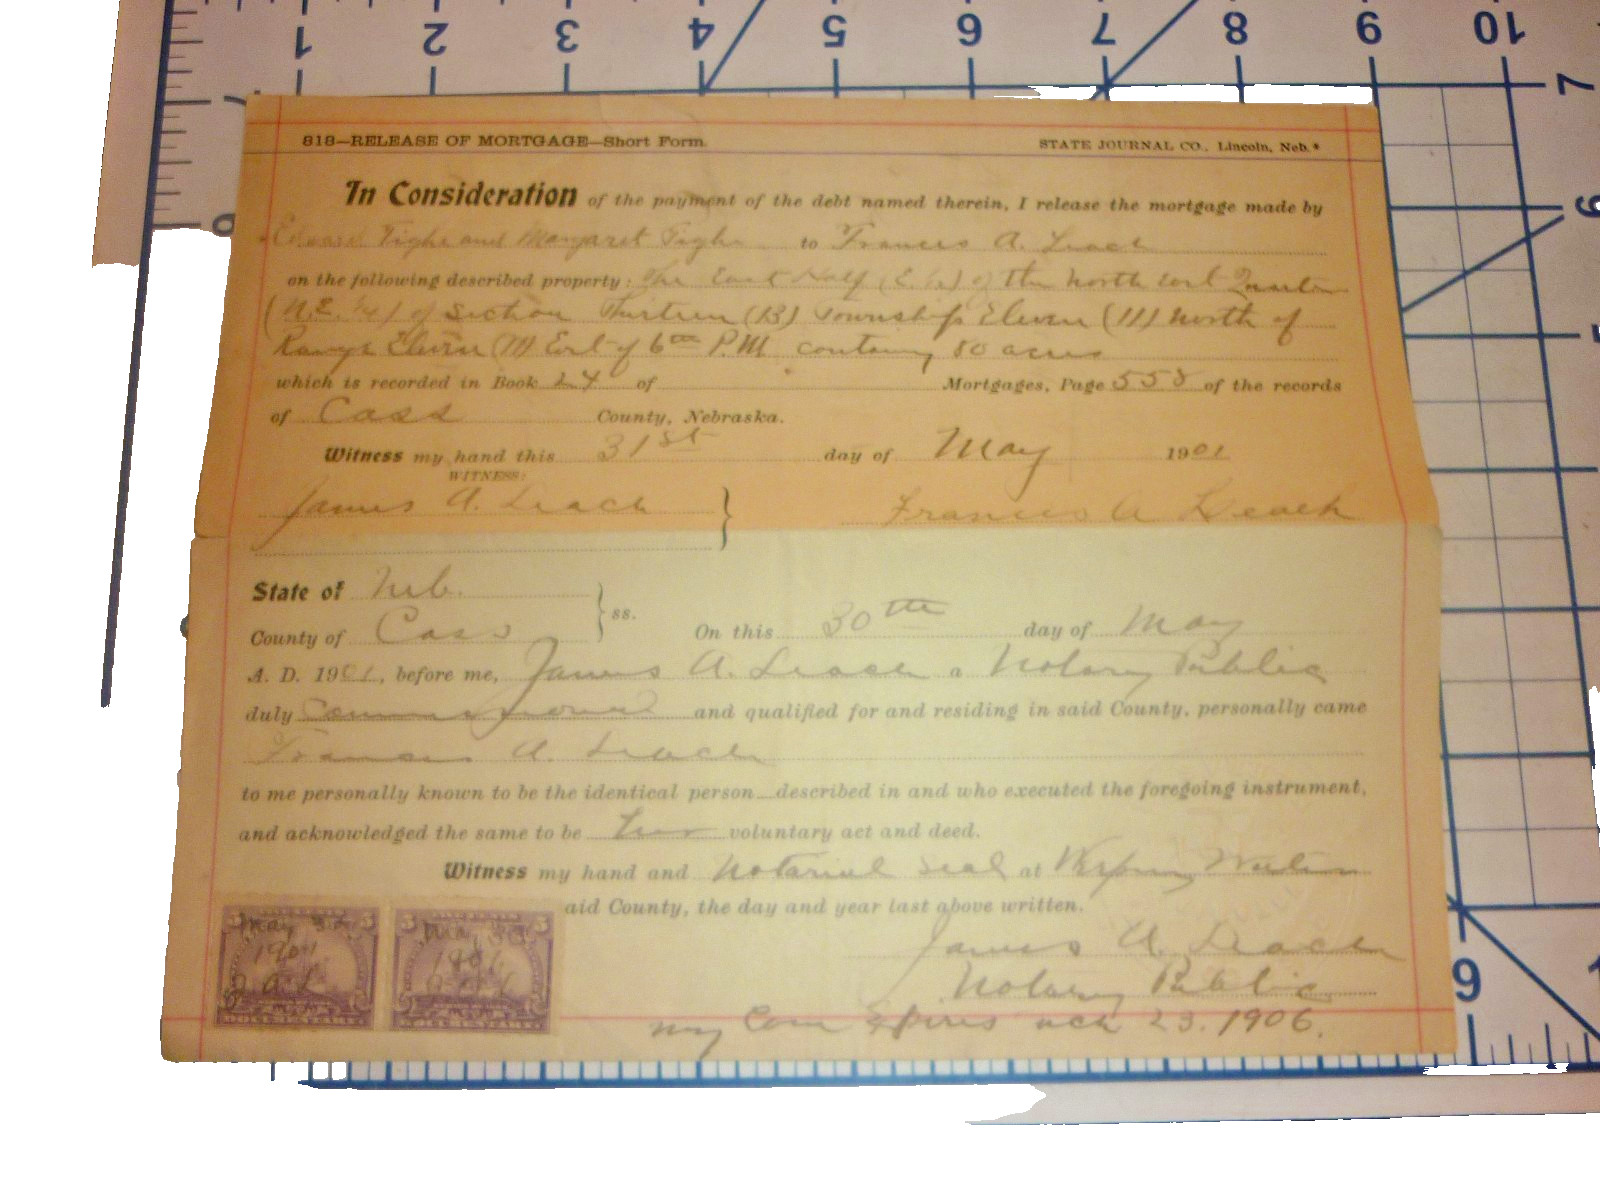 1 2 3 4 5 6 7 8 9 10
818—RELEASE OF MORTGAGE—Short Form.
STATE JOURNAL CO., Lincoln, Neb.*
In Consideration of the payment of the debt named therein, I release the mortgage made by
Tighe and Margaret Tighe to Frances A. Leach
on the following described property: The East Half (E. ½) of the North East Quarter
(N.E. ¼) of Section Thirteen (13) Township Eleven (11) North of
Range Eleven (11) East of 6th P.M. containing 80 acres
which is recorded in Book 24 of Mortgages, Page 558 of the records
of Cass County, Nebraska.
Witness my hand this 31st day of May 1901
WITNESS:
James A. Leach } Frances A Leach
State of Neb. } ss.
County of Cass On this 30th day of May
A. D. 1901, before me, James A. Leach a Notary Public
duly Commissioned and qualified for and residing in said County, personally came
Frances A. Leach
to me personally known to be the identical person described in and who executed the foregoing instrument,
and acknowledged the same to be her voluntary act and deed.
Witness my hand and Notarial Seal at Weeping Water
aid County, the day and year last above written.
James A. Leach
Notary Public
my Com Expires 23. 1906.
5 5 5 5
May
1901
J. A. L
DOCUMENTARY
1901
DOCUMENTARY
7
6
9